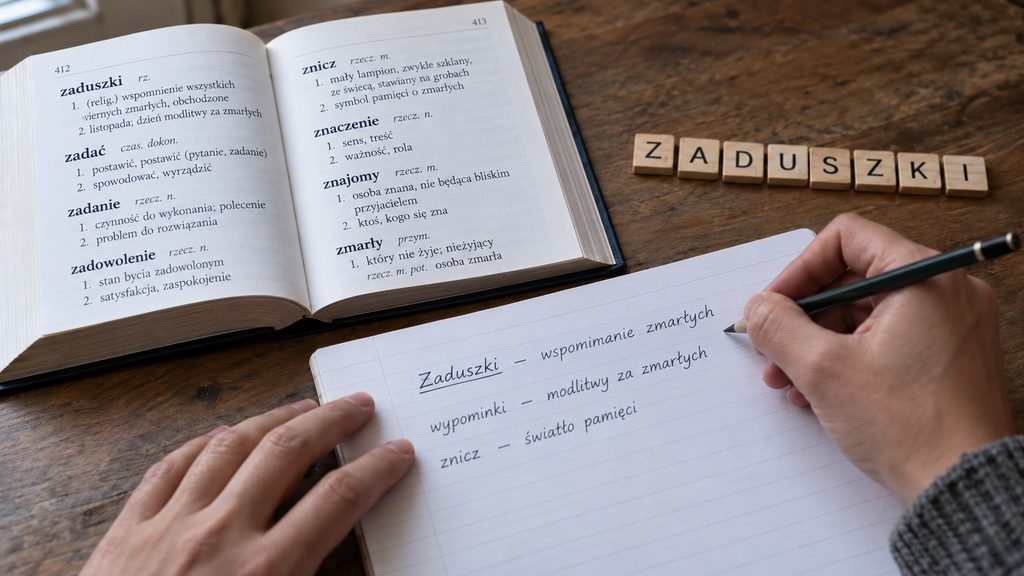 412
zaduszki rz.
1. (relig.) wspomnienie wszystkich
wiernych zmarłych, obchodzone
2. listopada; dzień modlitwy za zmarłych
zadać czas. dokon.
1. postawić, postawić (pytanie, zadanie)
2. spowodować, wyrządzić
zadanie rzecz. n.
1. czynność do wykonania; polecenie
2. problem do rozwiązania
zadowolenie rzecz. n.
1. stan bycia zadowolonym
2. satysfakcja, zaspokojenie
413
znicz rzecz. m.
1. mały lampion, zwykle szklany,
ze świecą, stawiany na grobach
2. symbol pamięci o zmarłych
znaczenie rzecz. n.
1. sens, treść
2. ważność, rola
znajomy rzecz. m.
1. osoba znana, nie będąca bliskim
przyjacielem
2. ktoś, kogo się zna
zmarły przym.
1. który nie żyje; nieżyjący
rzecz. m. pot. osoba zmarła
ZADUSZKI
Zaduszki – wspomimanie zmarłych
wypominki – modlitwy za zmarłych
znicz – światło pamięci